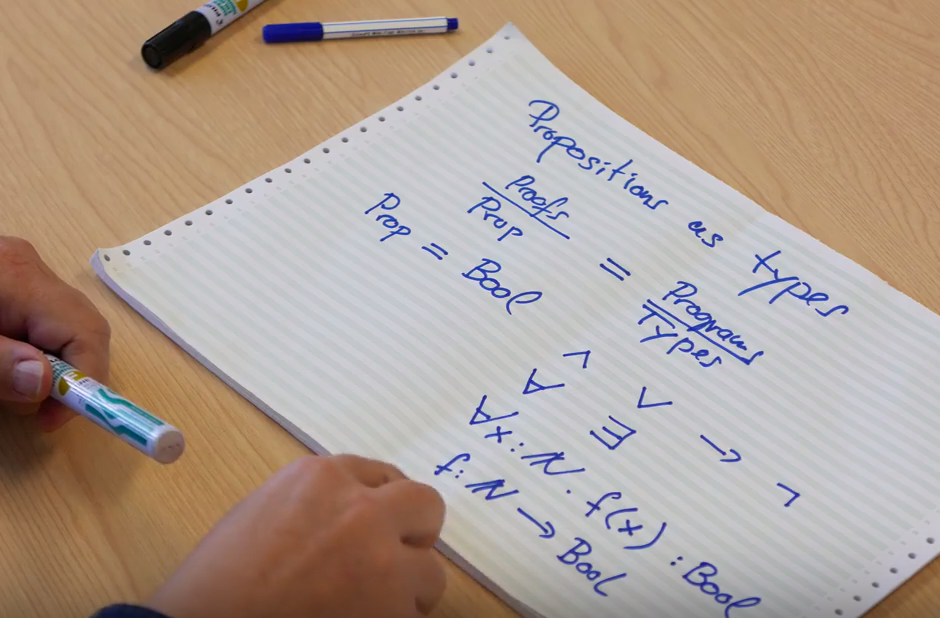 Propositions as types
Proofs = Programs
Prop Types
Prop = Bool
∧ ∨ → ¬
∀ ∃
∀x:ℕ. f(x) : Bool
f:ℕ → Bool